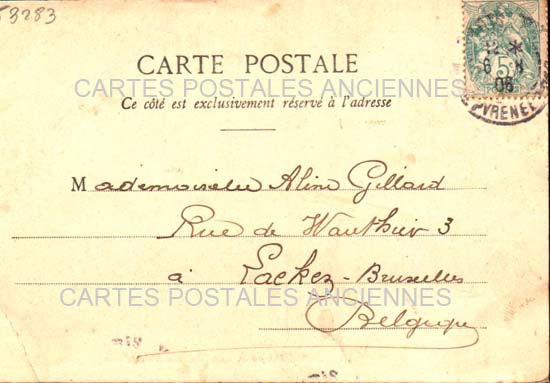 53283
CARTE POSTALE
CARTES POSTALES ANCIENNES
Ce côté est exclusivement réservé à l'adresse
5c
12 *
6 H
06
PYRENEE
Mademoiselle Aline Gillard
Rue de Wauthier 3
à Laeken-Bruxelles
CARTES POSTALES ANCIENNES
Belgique